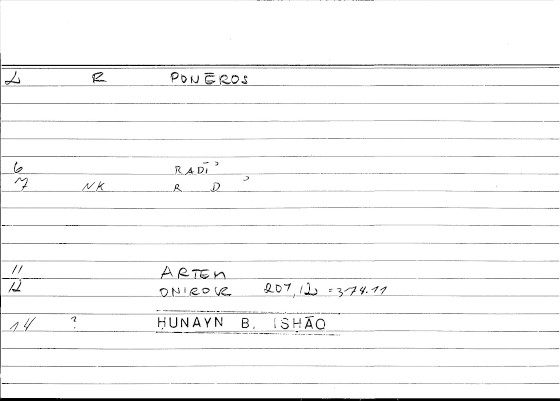 L R PONĒROS
6 RADĪʾ
7 NK R D ʾ
11 ARTEM
12 ONIROKR 207,12 = 374.11
14 ? HUNAYN B. ISHĀQ